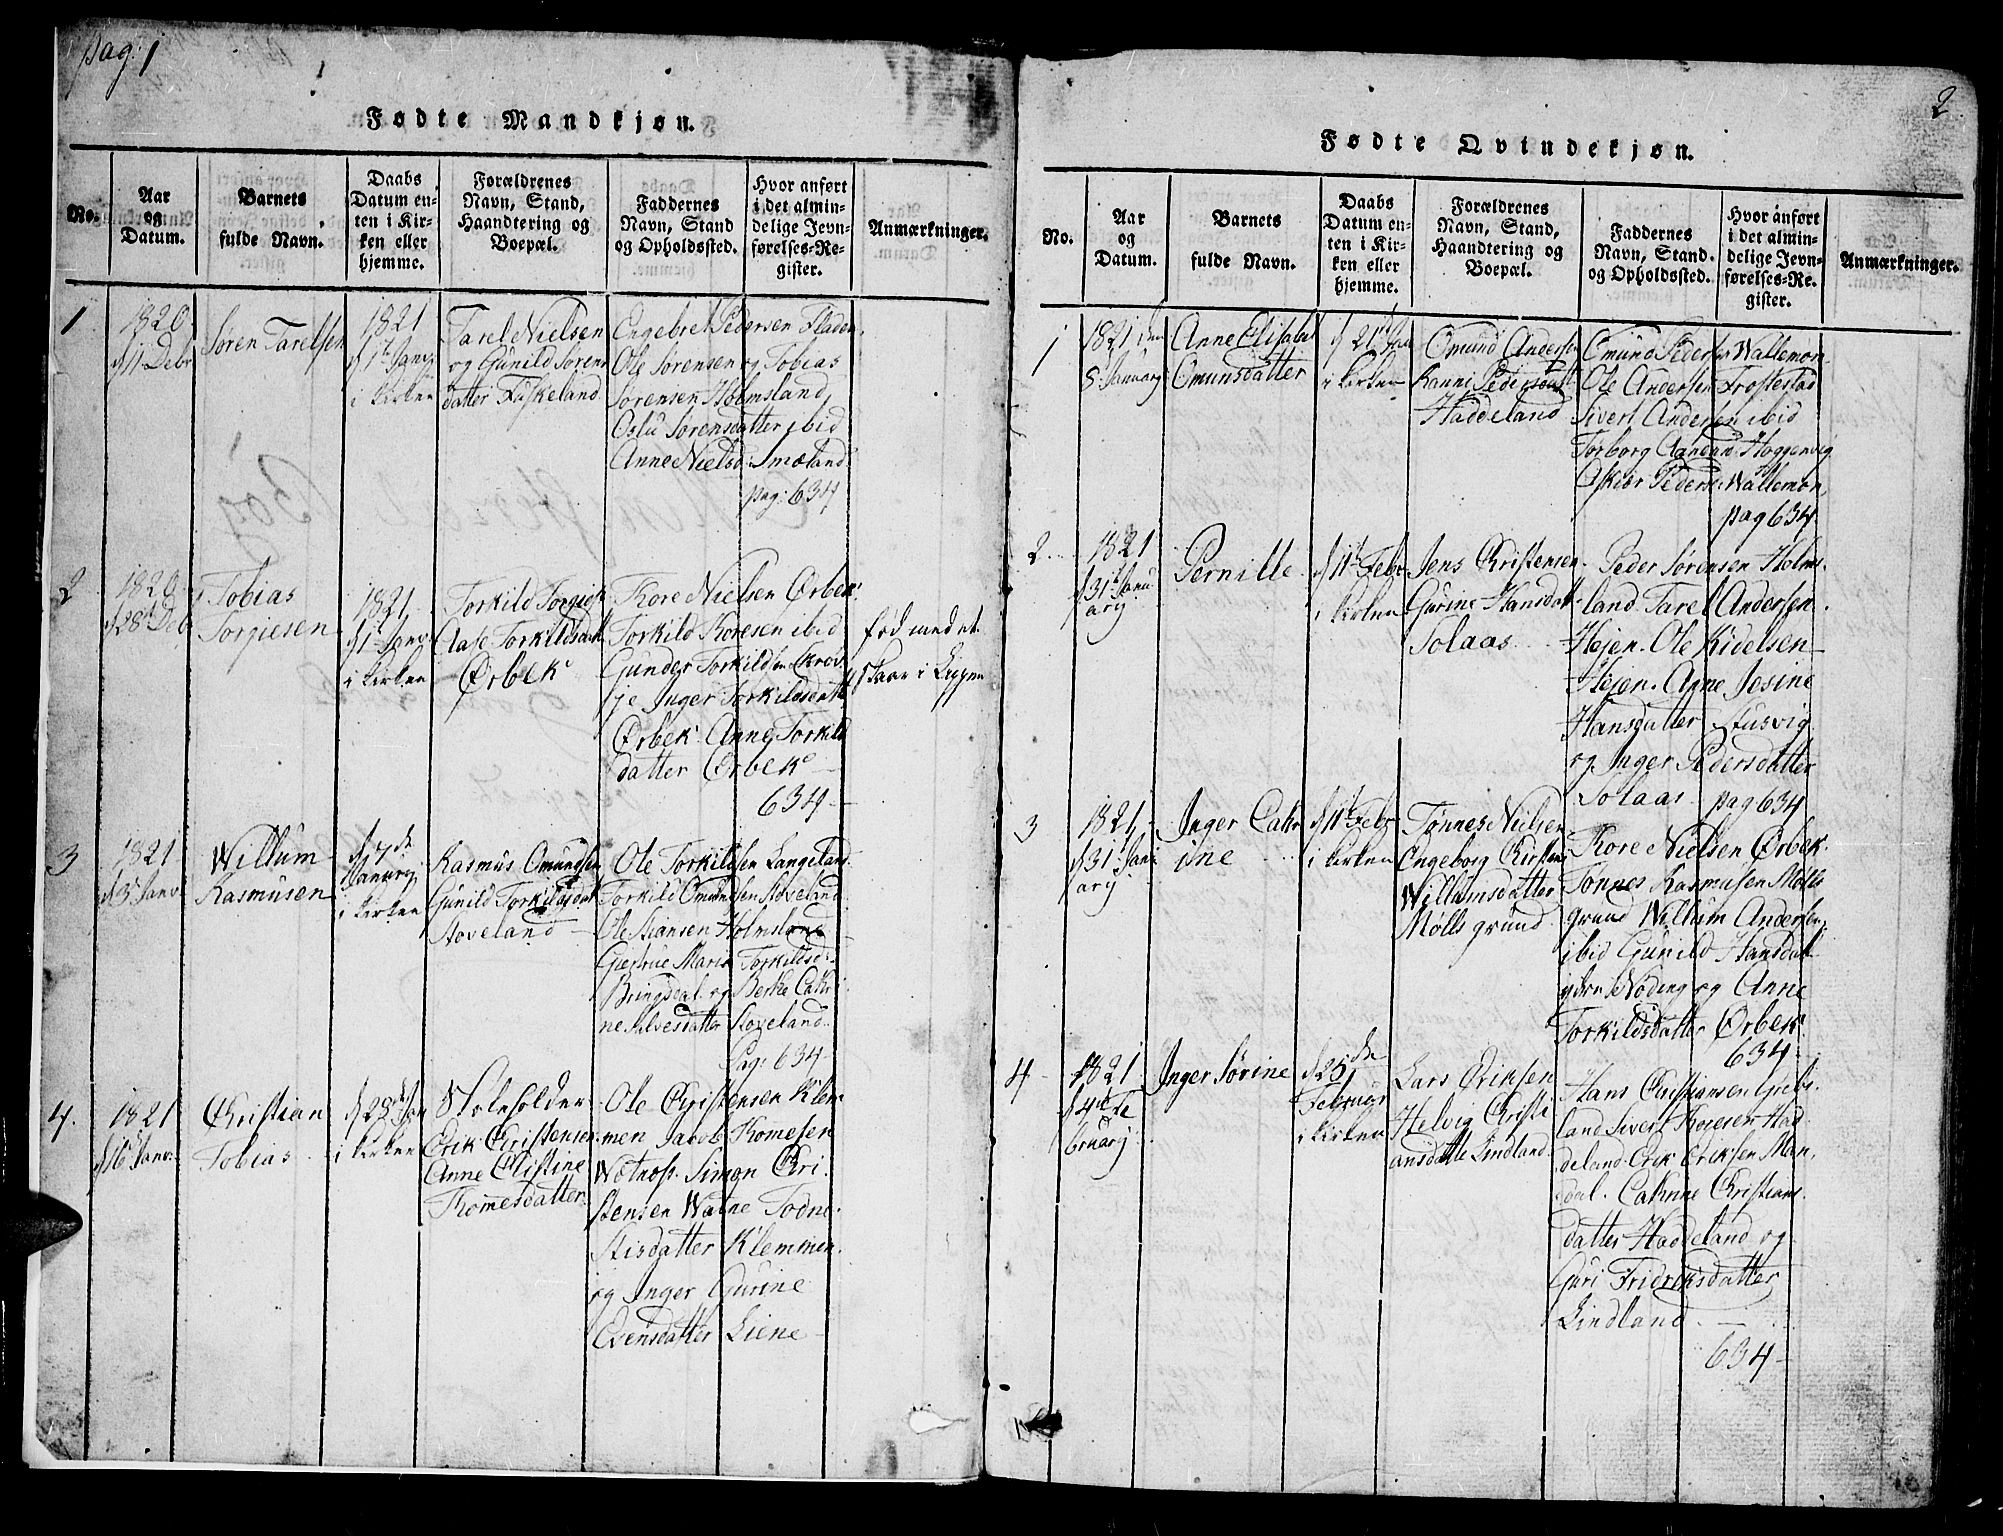 pag: 1
Fødte Mandkjøn.
No.
Aar
og
Datum.
Barnets
fulde Navn.
Daabs
Datum en-
ten i Kir-
ken eller
hjemme.
Forældrenes
Navn, Stand,
Haandtering og
Boepæl.
Faddernes
Navn, Stand
og Opholdssted.
Hvor anført
i det almin-
delige Jevn-
førelses-Re-
gister.
Anmærkninger.
1
1820
d 11 Debr
Søren Tarelsen
1821
d 1t Janv
i kirken
Tarel Nielsen
og Gunild Sørens
datter Fuskeland
Engebret Pedersen Fladen
Ole Sørensen og Tobias
Sørensen Holmsland
Oslu Sørensdatter ibid
Anne Nielsd: Smæland
pag: 634
2
1820
d 28t Deb
Tobias
Torgiesen
1821
d 1t Janv
i kirken
Torkild Torgies
Aase Torkildsdatt
Ørbek
Kore Nielsen Ørbek
Torkild Koresen ibid
Gunder Torkildsen
Inger Torkildsdatt
Ørbek Anne Torkild
datter Ørbek
634
fød med et
skaar i Læppen
3
1821
d 3 Janv
Willum
Rasmusen
d 7de
Januarj
i kirken
Rasmus Omundsen
Gunild Torkildsdat
Stoveland
Ole Torkildsen Langeland
Torkild Omundsen Stoveland
Ole Stiansen Holmsland
Giertrue Marie Torkildsd:
Bringsdal og Berthe Cathr
ne Salvesdatter Stoveland
Pag: 634
4.
1821
d 16 Janv
Christian
Tobias
d 28de Jan
i kirken
Erik Christensen
Anne Christine
Thomesdatter
Ole Christensen Klem
men Jacob Thomesen
Simon Chri
stensen Walne Todne
Stisdatter Klemmen
og Inger Gurine
Evensdatter Liene
2
Fødte Qvindekjøn.
No.
Aar
og
Datum.
Barnets
fulde Navn.
Daabs
Datum en-
ten i Kir-
ken eller
hjemme.
Forældrenes
Navn, Stand,
Haandtering og
Boepæl.
Faddernes
Navn, Stand.
og Opholdssted.
Hvor anført
i det almin-
delige Jevn-
førelses-Re-
gister.
Anmærkninger.
1
1821 den
8 Januarj
Anne Elisabet
Omunsdatter
d 21t Jan
i kirken
Omund Andersen
Ranni Pedersdat
Haddeland
Omund Peders Wallemon
Ole Andersen Frøstestad
Sivert Andersen ibid
Torborg Høggenvig
Peders: Wallemon
pag 634
2
1821
d 31t Janu
arj
Pernille
d 11t Febr
i kirken
Jens Christensen
Gurine Hansdatt
Solaas
Peder Sørensen Holms
land Tarel Andersen
Højen. Ole Kidelsen
Højen. Anne Jesine
Hansdatter Stusvig
og Inger Pedersdatter
Solaas pag 634
3
1821
d 31 Janu
arj
Inger Cathr
ine
d 11t Febr
i kirken
Tønnes Nielsen
Engeborg Kirstine
Willumsdatter
Mølls grund
Kore Nielsen Ørbek
Tønnes Rasmusen Mølls
grund Willum Andersen
ibid Gunild Hansdat
ydre Nøding og Anne
Torkildsdatter Ørbek
634
4
1821
d 4de Fe
bruarj
Inger Sørine
d 25de
Februar
i kirken
Lars Eriksen
Helvig Christi
ansdatte Lindland
Hans Christiansen Gieb
land Sivert Koresen Had
deland Erik Eriksen Man
dal. Cathrine Christians
datter Haddeland og
Guri Fridriksdatter
Lindland
634